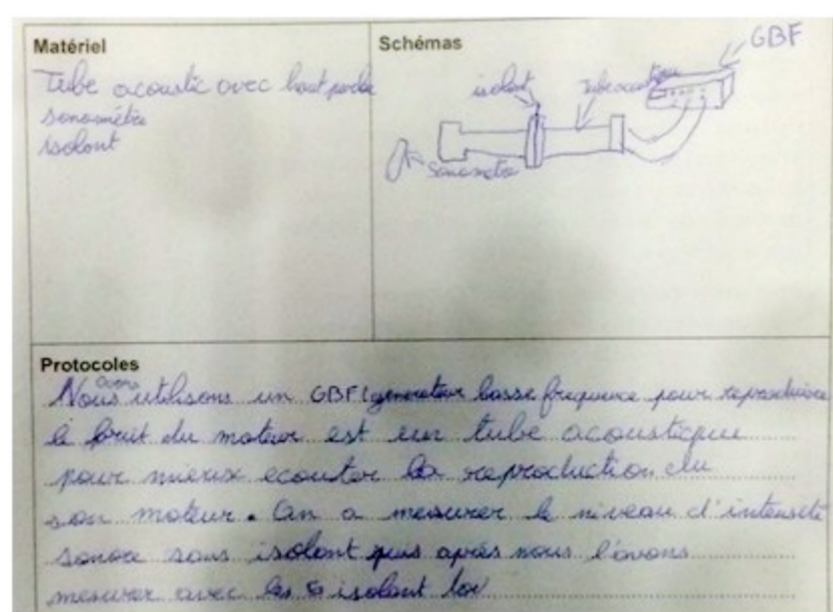 Matériel
Tube acoustic avec haut parle
sonomètre
isolant
Schémas
GBF
isolant
Tube acoustique
Sonomètre
Protocoles
avons
Nous utilisons un GBF (generateur basse frequence pour reproduire
le bruit du moteur est un tube acoustique
pour mieux ecouter la reproduction du
son moteur. On a mesurer le niveau d'intensité
sonore sans isolant puis après nous l'avons
mesurer avec les isolant